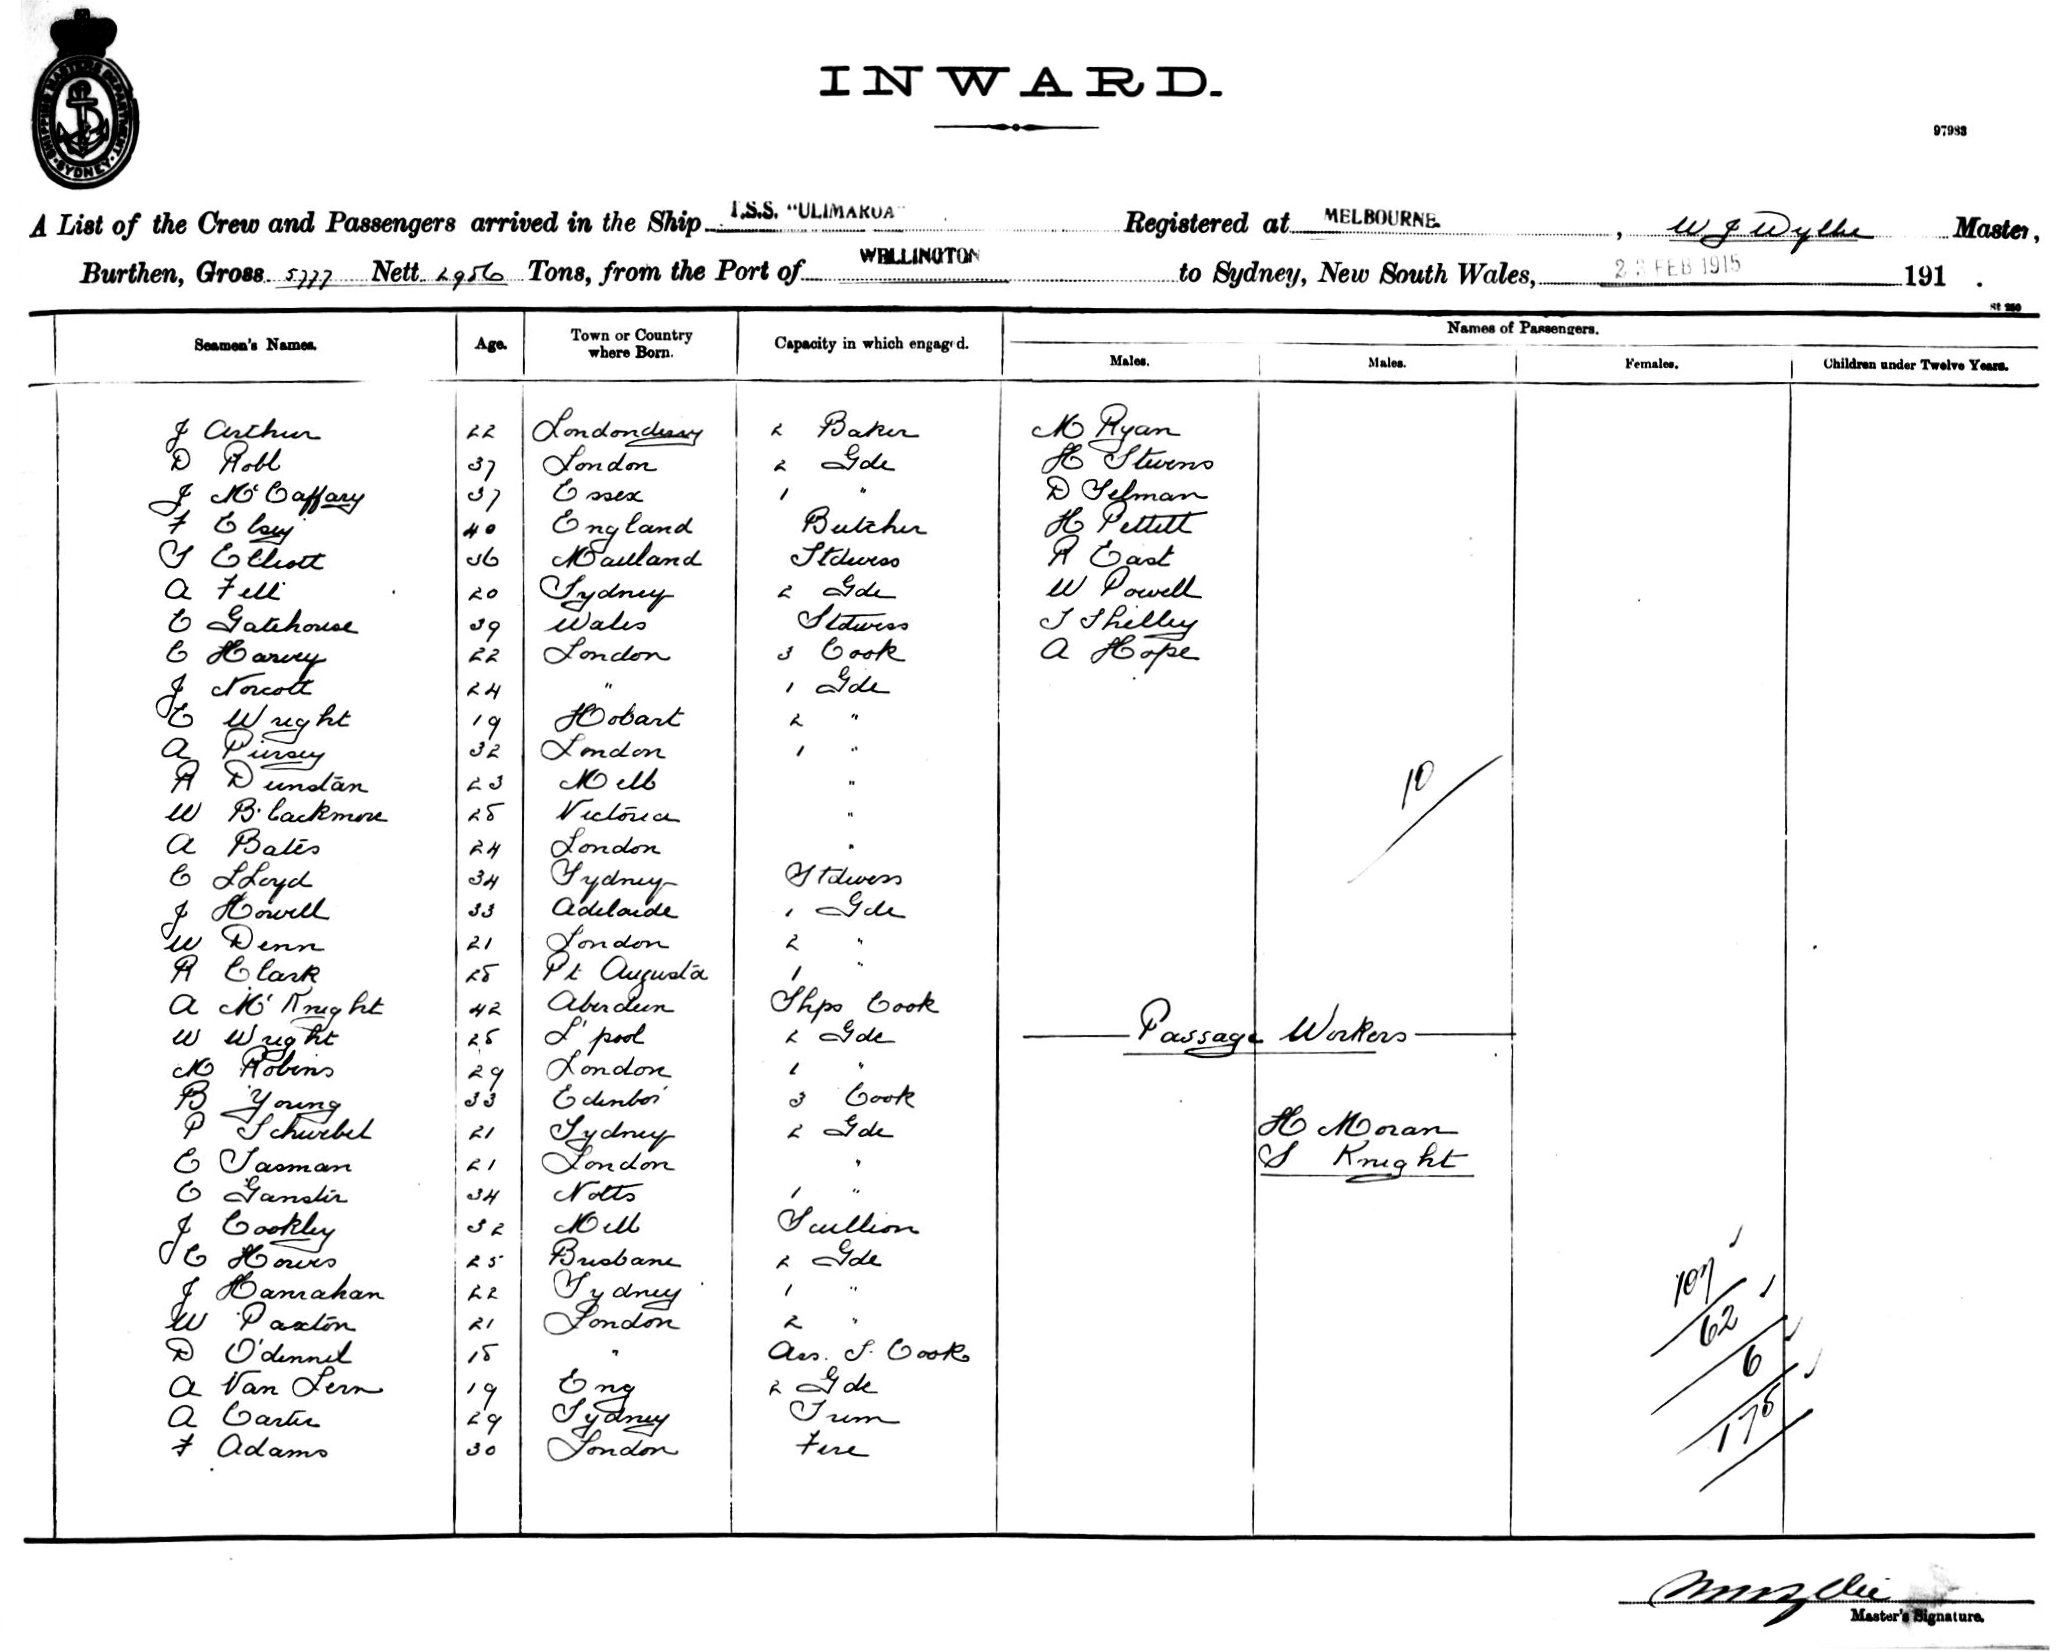 SHIPPING MASTERS DEPARTMENT SYDNEY
INWARD.
97983
A List of the Crew and Passengers arrived in the Ship T.S.S. "ULIMAROA" Registered at MELBOURNE. , W J Wyllie Master,
Burthen, Gross 5777 Nett 2956 Tons, from the Port of WELLINGTON to Sydney, New South Wales, 23 FEB 1915 191 .
St 250
Names of Passengers.
Seamen's Names. Age. Town or Country where Born. Capacity in which engaged. Males. Males. Females. Children under Twelve Years.
J Arthur 22 Londonderry 2 Baker M Ryan
D Robl 37 London 2 Gde H Stevens
J McCaffary 37 Essex 1 " D Selman
F Elsey 40 England Butcher H Pettitt
S Elliott 36 Maitland Stdwess R East
A Fell 20 Sydney 2 Gde W Powell
E Gatehouse 39 Wales Stdwess T Shelley
C Harvey 22 London 3 Cook A Hope
J Norcott 24 " 1 Gde
E Wright 19 Hobart 2 "
A Pursey 32 London 1 "
R Dunstan 23 Melb "
10
W Blackmore 25 Victoria "
A Bates 24 London "
C LLoyd 34 Sydney Stdwess
J Howell 33 Adelaide 1 Gde
W Denn 21 London 2 "
R Clark 25 Pt Augusta 1 "
A McKnight 42 Aberdeen Shps Cook
W Wright 25 L'pool 2 Gde Passage Workers
M Robins 29 London 1 "
B Young 33 Edinboro' 3 Cook
P Schwebel 21 Sydney 2 Gde H Moran
E Tasman 21 London " S Knight
C Ganster 34 Notts 1 "
J Cookley 32 Melb Scullion
C Howes 25 Brisbane 2 Gde
J Hanrahan 22 Sydney 1 "
107
W Paxton 21 London 2 "
62
D O'dennel 18 " Ass. S. Cook
6
A Van Lern 19 Eng 2 Gde
A Carter 29 Sydney Trim
175
F Adams 30 London Fire
W J Wyllie
Master's Signature.